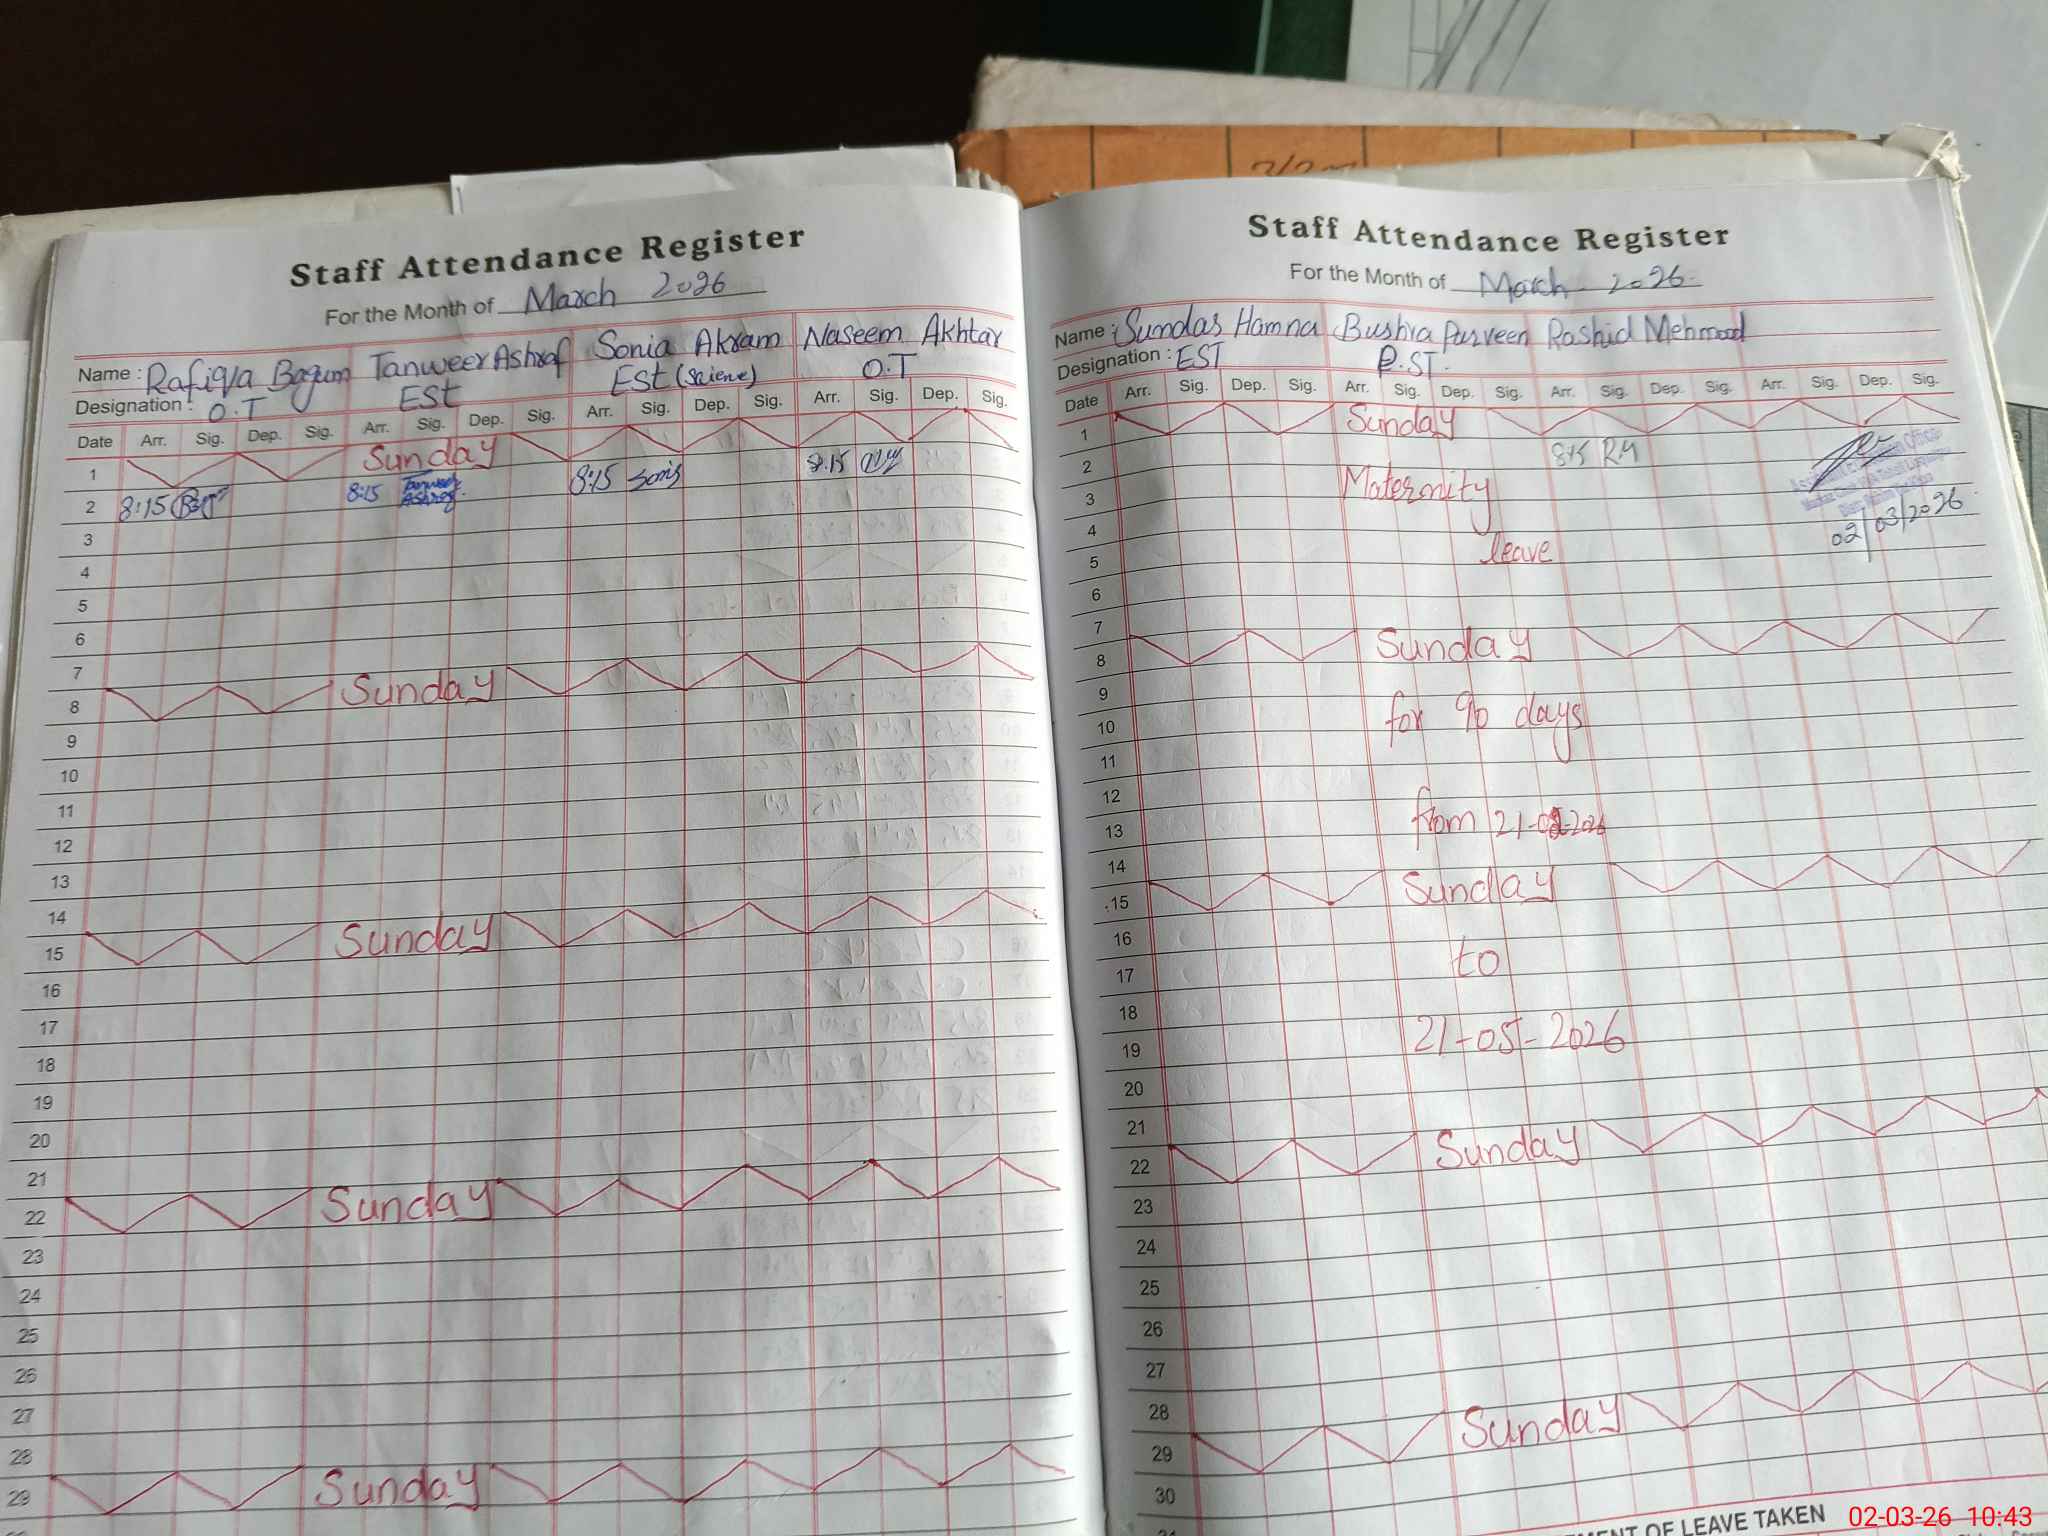 Staff Attendance Register
For the Month of March 2026
Name : Rafiqa Begum Tanweer Ashraf Sonia Akram Naseem Akhtar
Designation : O.T ESt ESt (Science) O.T
Date Arr. Sig. Dep. Sig. Arr. Sig. Dep. Sig. Arr. Sig. Dep. Sig. Arr. Sig. Dep. Sig.
1 Sunday
2 8:15 8:15 Tanweer Ashraf 8:15 Sonia 8:15
3
4
5
6
7
8 Sunday
9
10
11
12
13
14
15 Sunday
16
17
18
19
20
21
22 Sunday
23
24
25
26
27
28
29 Sunday
Staff Attendance Register
For the Month of March - 2026.
Name : Sundas Hamna Bushra Parveen Rashid Mehmood
Designation : EST P.ST.
Date Arr. Sig. Dep. Sig. Arr. Sig. Dep. Sig. Arr. Sig. Dep. Sig. Arr. Sig. Dep. Sig.
1 Sunday
2 8:15 RM
3 Maternity
4
5 leave
02/03/2026
6
7
8 Sunday
9
10 for 90 days
11
12
13 from 21-02-2026
14
15 Sunday
16
17 to
18
19 21-05-2026
20
21
22 Sunday
23
24
25
26
27
28
29 Sunday
30
OF LEAVE TAKEN
02-03-26 10:43